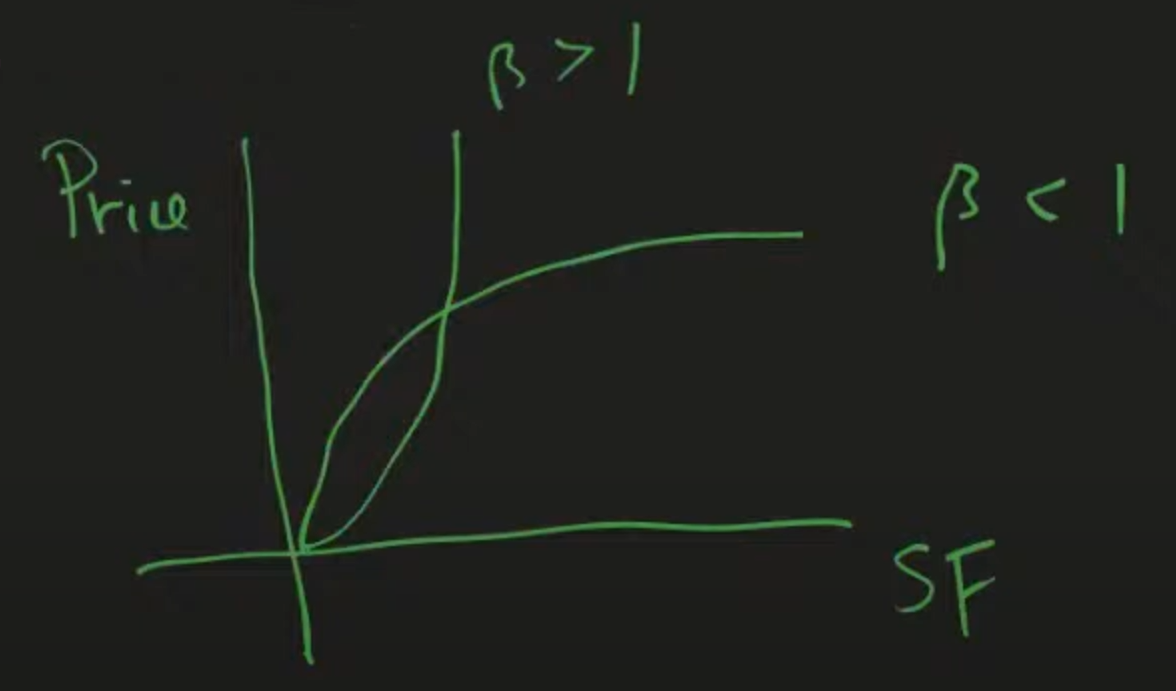 β > 1
Price
β < 1
SF